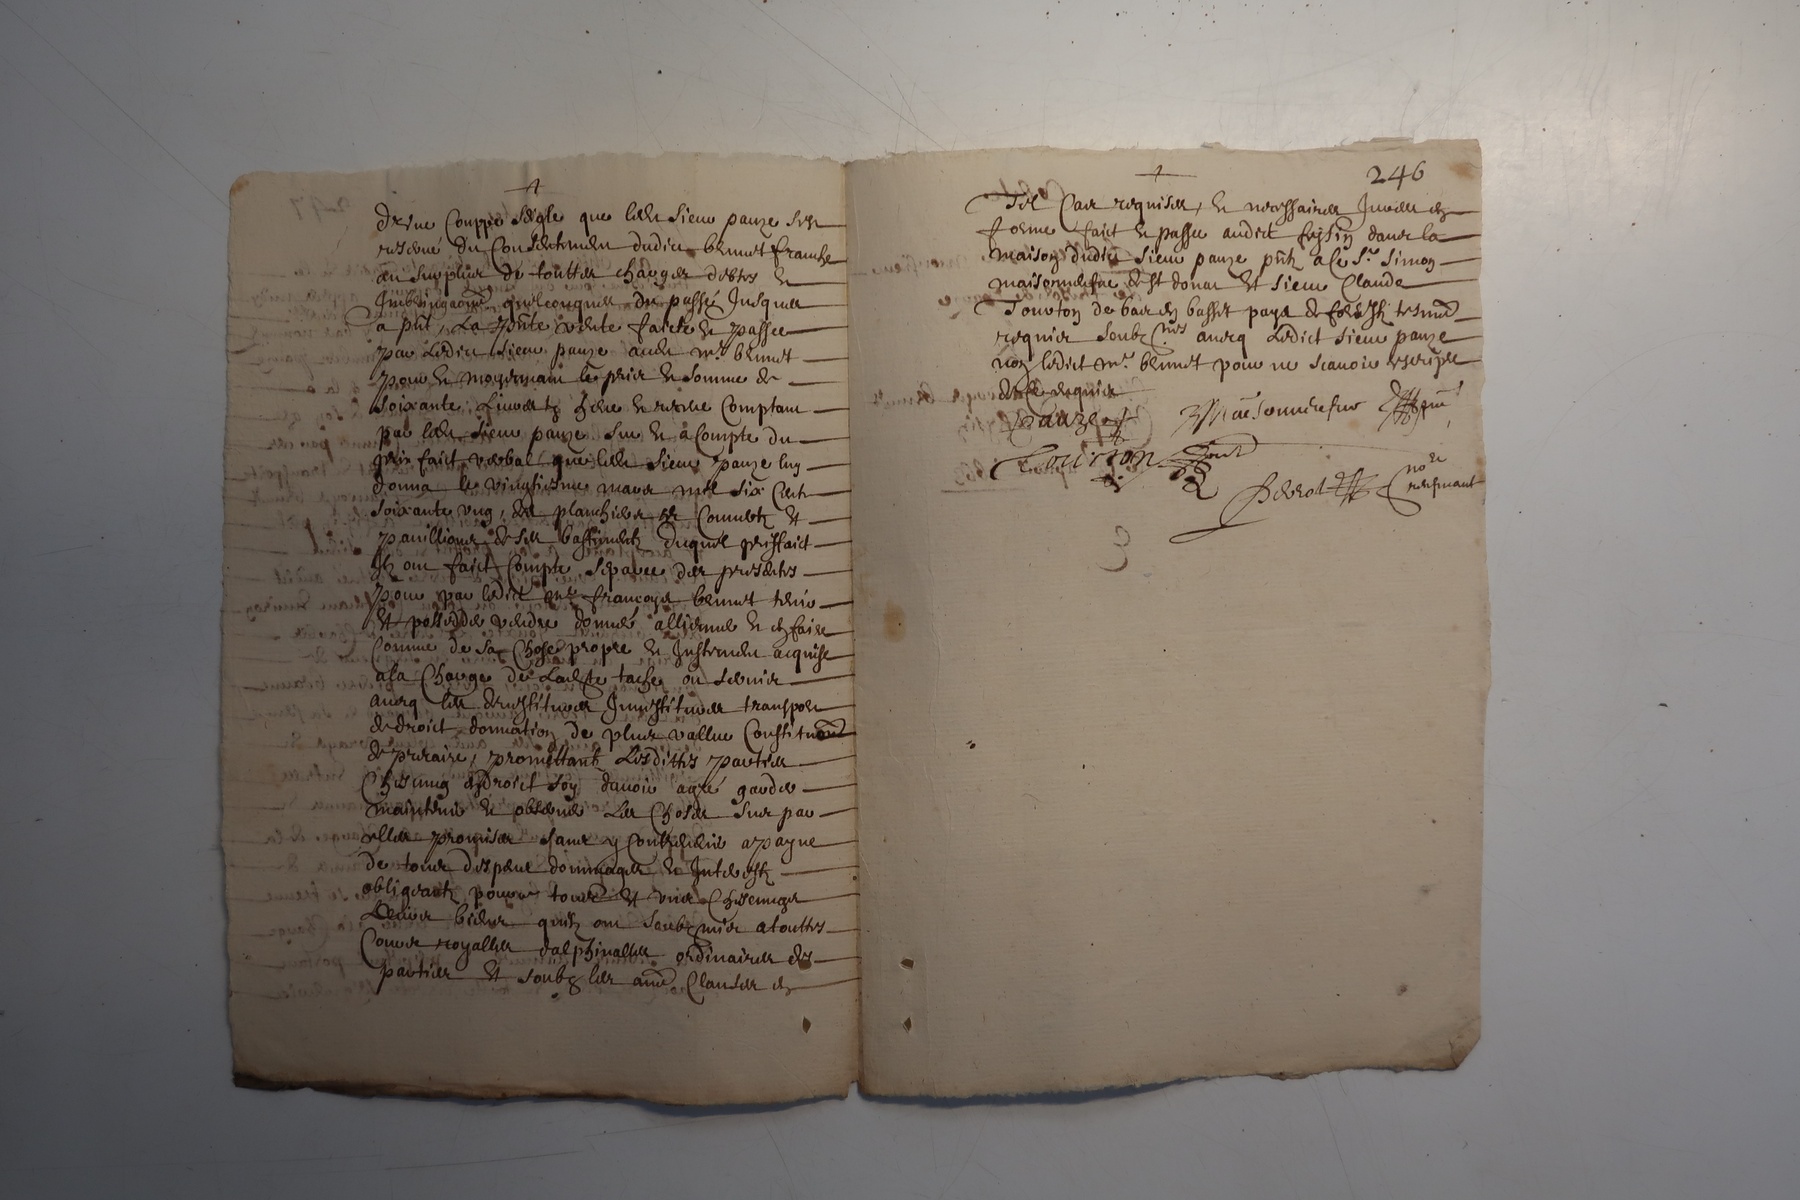 d'une Couppe segle que ledit sieur panze sest
reservé du Consentement dudict bennet franche
au surplus de touttes charges debtes et
Jusques
a pnt, La pnte vente faicte et passee
par Ledict sieur panze audit mr bennet
pour et moyennant le prix et somme de
soixante Livres comptant
par ledit sieur panze sur et a Compte du
prix faict verbal que ledit sieur panze luy
donna le vingtiesme mars mil six Cent
soixante ung, des planchiers et
pavillions de ses bastimentz duquel prisfaict
Ilz ont faict Compte separee des presentes
pour par ledict mre francoys bennet tenir
et posseder vendre donner alliener et en faire
Comme de sa Chose propre et Justement acquise
a la Charge de Ladicte tache ou servis
avecq les devestitures Investitures transport
de droict donnation de plus vallue Constitution
de precaire, promettantz Lesdittes parties
Chescung endroict soy davoir agré garder
maintenir et observer Les Choses sus par
elles promises sans y Contrevenir a payne
de tous despens dommages et Interestz
obligeantz pour ce tous et uns Chescungs
Leurs biens quilz ont soubzmis a touttes
Cours royalles dalphinalles ordinaires des
parties et soubz les aues Clauses en
246
Tel Cas requises, et necessaires Jurees en
forme faict et passe audict feysin dans la
maison dudict sieur panze pntz a ce Sr Simon
maisonneufve de St donat et sieur Claude
Tourton de bas en basset pays de forestz tesmoins
requis soubznes avecq Ledict sieur panze
non ledict mr bennet pour ne scavoir escripre
de ce requis
Panze
Maisonneufve
Tourton